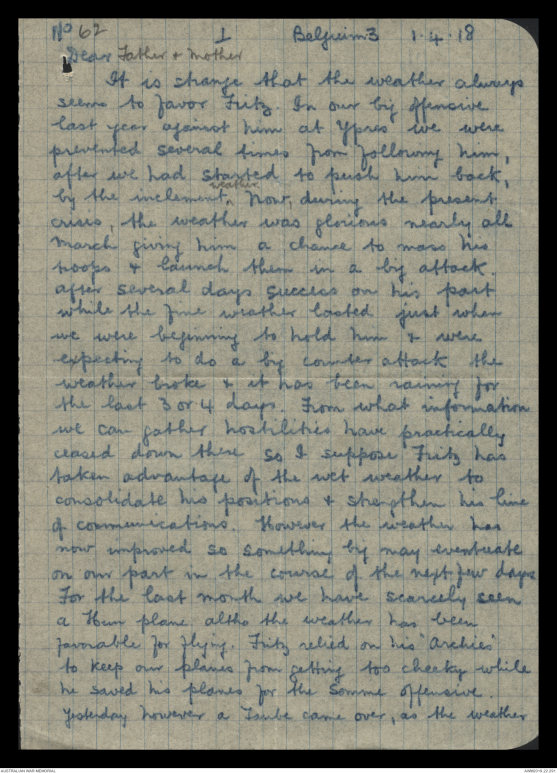 No 62 1 Belgium 3 1.4.18
Dear Father & Mother
It is strange that the weather always
seems to favor Fritz. In our big offensive
last year against him at Ypres we were
prevented several times from following him,
after we had started to push him back,
by the inclement weather. Now, during the present
crisis, the weather was glorious nearly all
March giving him a chance to mass his
troops & launch them in a big attack.
After several days success on his part
while the fine weather lasted just when
we were beginning to hold him & were
expecting to do a big counter attack the
weather broke & it has been raining for
the last 3 or 4 days. From what information
we can gather hostilities have practically
ceased down there so I suppose Fritz has
taken advantage of the wet weather to
consolidate his positions & strengthen his line
of communications. However the weather has
now improved so something big may eventuate
on our part in the course of the next few days
For the last month we have scarcely seen
a Hun plane altho the weather has been
favorable for flying. Fritz relied on his "Archies"
to keep our planes from getting too cheeky while
he saved his planes for the Somme offensive.
Yesterday however a Taube came over, as the weather
AUSTRALIAN WAR MEMORIAL